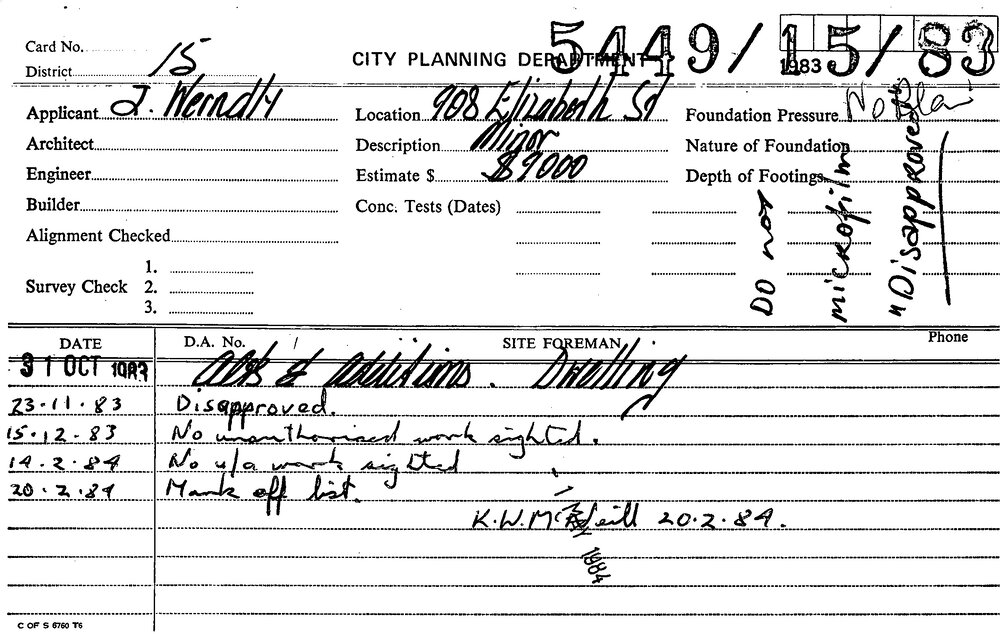 Card No.
District 15
CITY PLANNING DEPARTMENT
5449/15/83
1983
Applicant J. Werndly
Location 908 Elizabeth St
Foundation Pressure No Plan
Architect
Description Minor
Nature of Foundation
Engineer
Estimate $ $9000
Depth of Footings
Builder
Conc. Tests (Dates)
Alignment Checked
Survey Check
1.
2.
3.
DO not
microfilm
"Disapproved"
DATE
D.A. No. /
SITE FOREMAN
Phone
31 OCT 1983 Alts & additions. Dwelling
23.11.83 Disapproved.
15.12.83 No unauthorised work sighted.
14.2.84 No u/a work sighted
20.2.84 Mark off list.
K.W. McNeill 20.2.84.
1984
C OF S 6760 T6